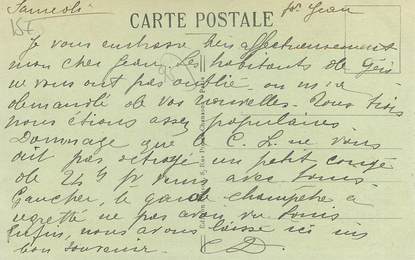 Samedi
pr Jean
157
CARTE POSTALE
Je vous embrasse bien affectueusement
mon cher Jean. Les habitants de
ne vous ont pas oublié on m'a
demandé de vos nouvelles. Vous
nous étions assez populaires
Dommage que le C. L. ne vous
ait pas octroyé un petit congé
de 24h pr venir avec nous.
Gaucher, le garde champêtre a
regretté ne pas avoir vu Louis
Enfin, nous avons laissé ici un
bon souvenir.
D.